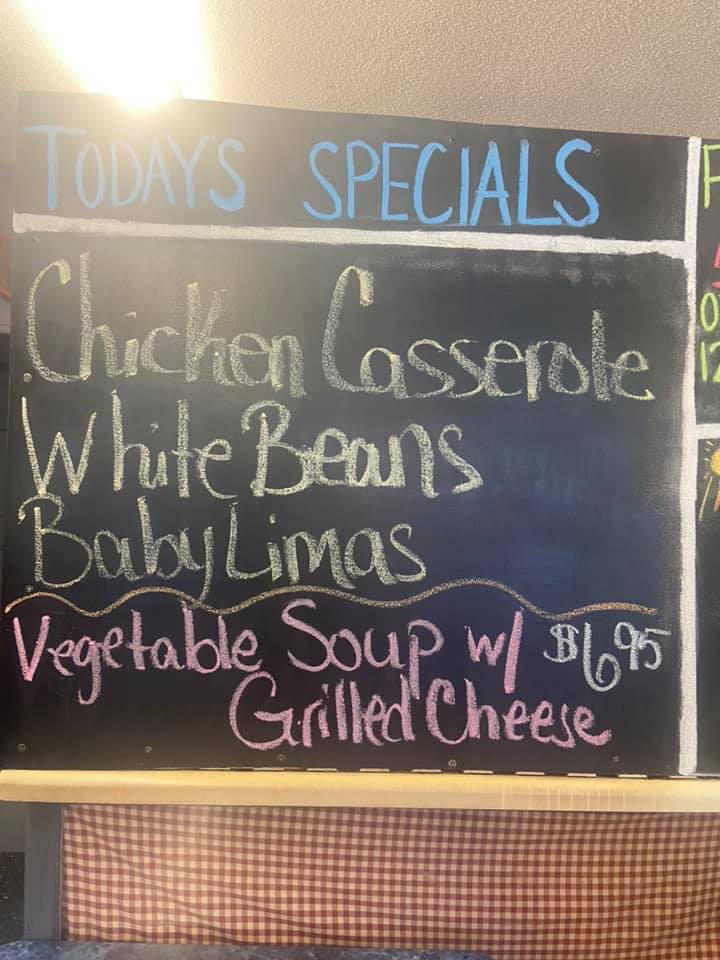 TODAY'S SPECIALS
Chicken Casserole
White Beans
Baby Limas
Vegetable Soup w/ $6.95
Grilled Cheese